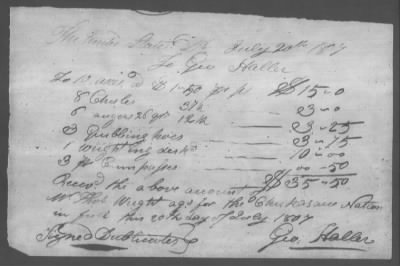 The United States Dr. July 20th 1807
To Geo. Haller
To 10 axis a $1-50 pr ps $15-0
8 Chisles 37½ 3-0
6 augers 26 qrs 12½ 3-25
3 Grubbing hoes 3-75
1 wrighting desk 10-00
3 pr Cumpasses 00-50
$35-50
Receivd the above amount of
Mr Thos Wright agt for the Chickasaw Nation
in full this 20th day of July 1807
Signed Dublicates Geo. Haller